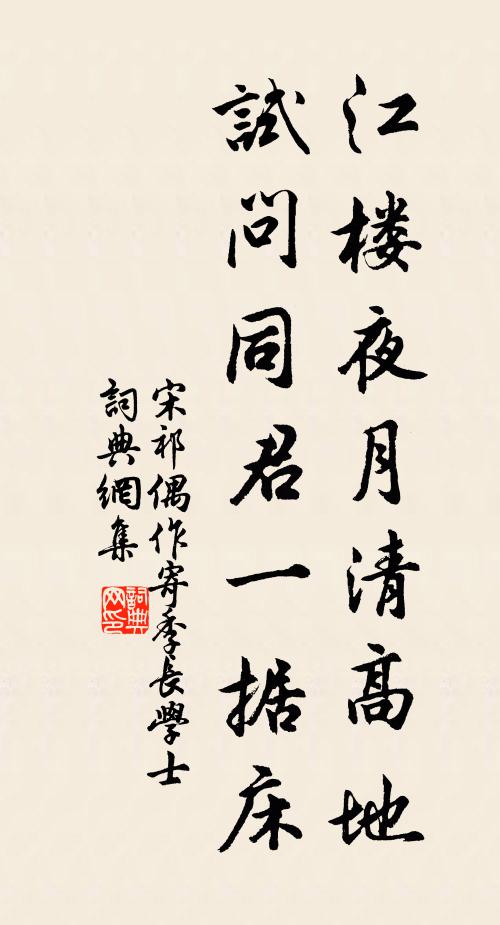 江楼夜月清高地
試問同君一据床
宋祁偶作寄季长學士
詞典網集
詞典网印